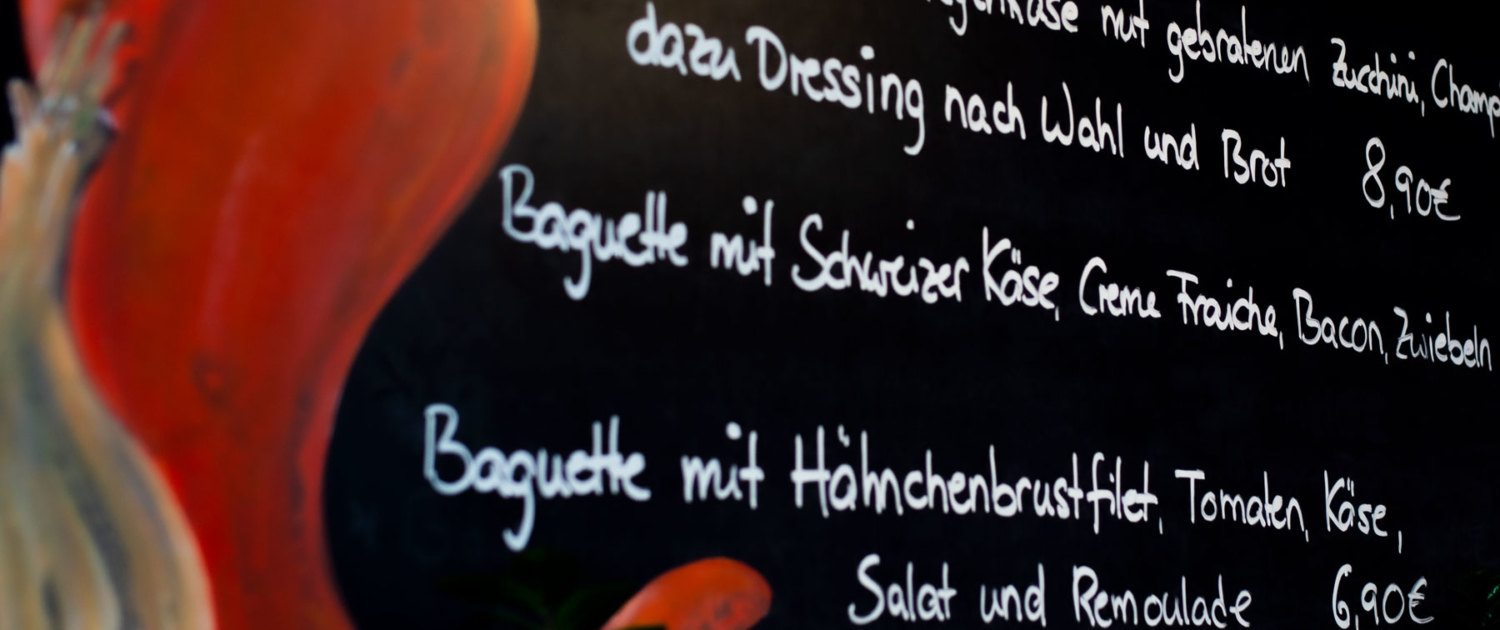 mit gebratenen Zucchini, Champ
dazu Dressing nach Wahl und Brot 8,90€
Baguette mit Schweizer Käse, Creme Fraiche, Bacon, Zwiebeln
Baguette mit Hähnchenbrustfilet, Tomaten, Käse,
Salat und Remoulade 6,90€